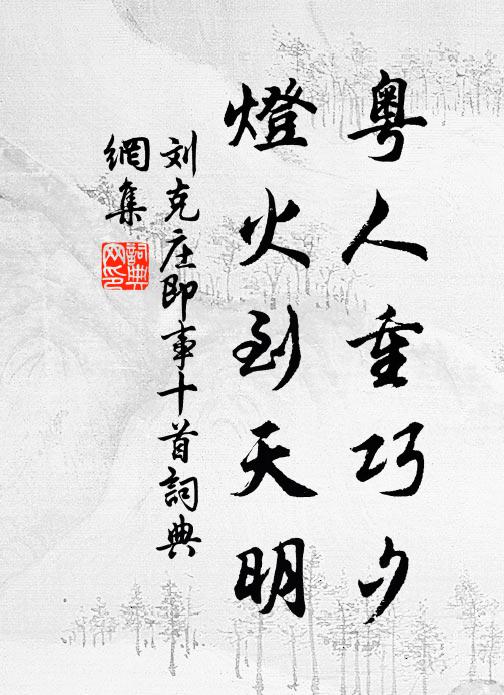 粤人重巧夕
燈火到天明
刘克庄即事十首詞典
網集
詞典
网印